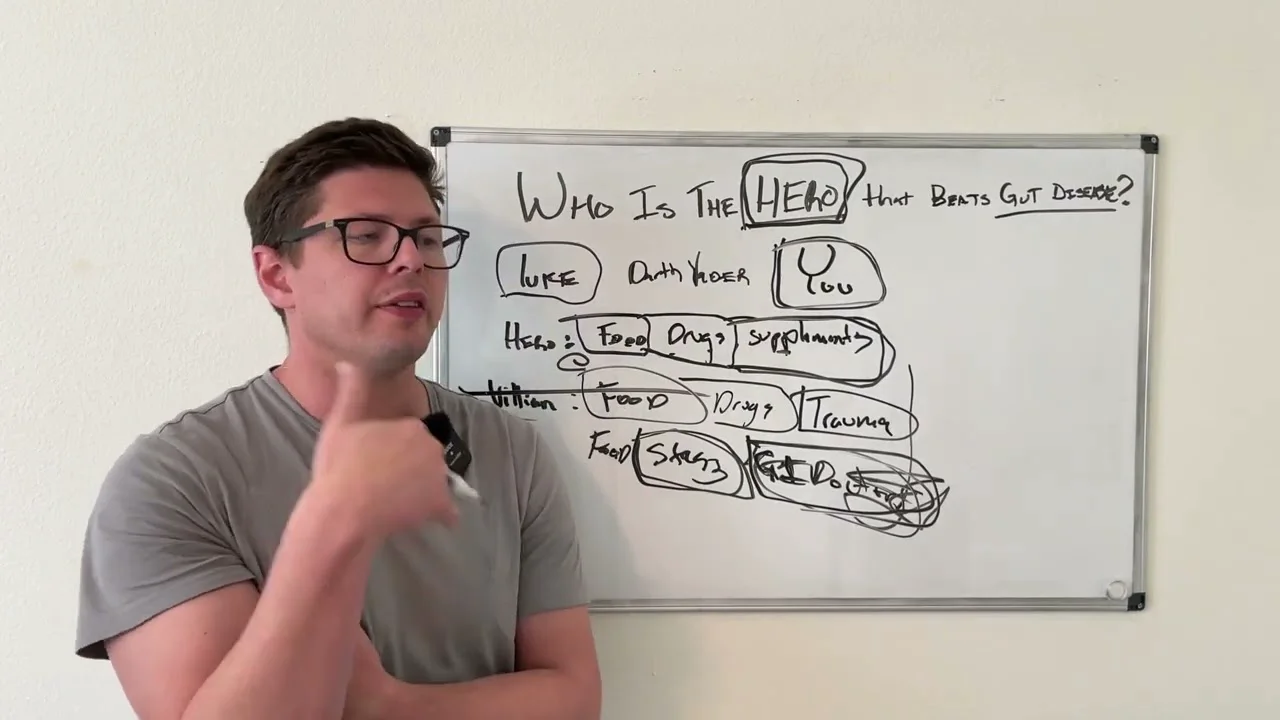 WHO IS THE HERO that BEATS GUT DISEASE?
LUKE Darth VADER YOU
HERO: FOOD Drugs supplments
Villian: FOOD Drugs Trauma
FOOD Stress GI Doctors